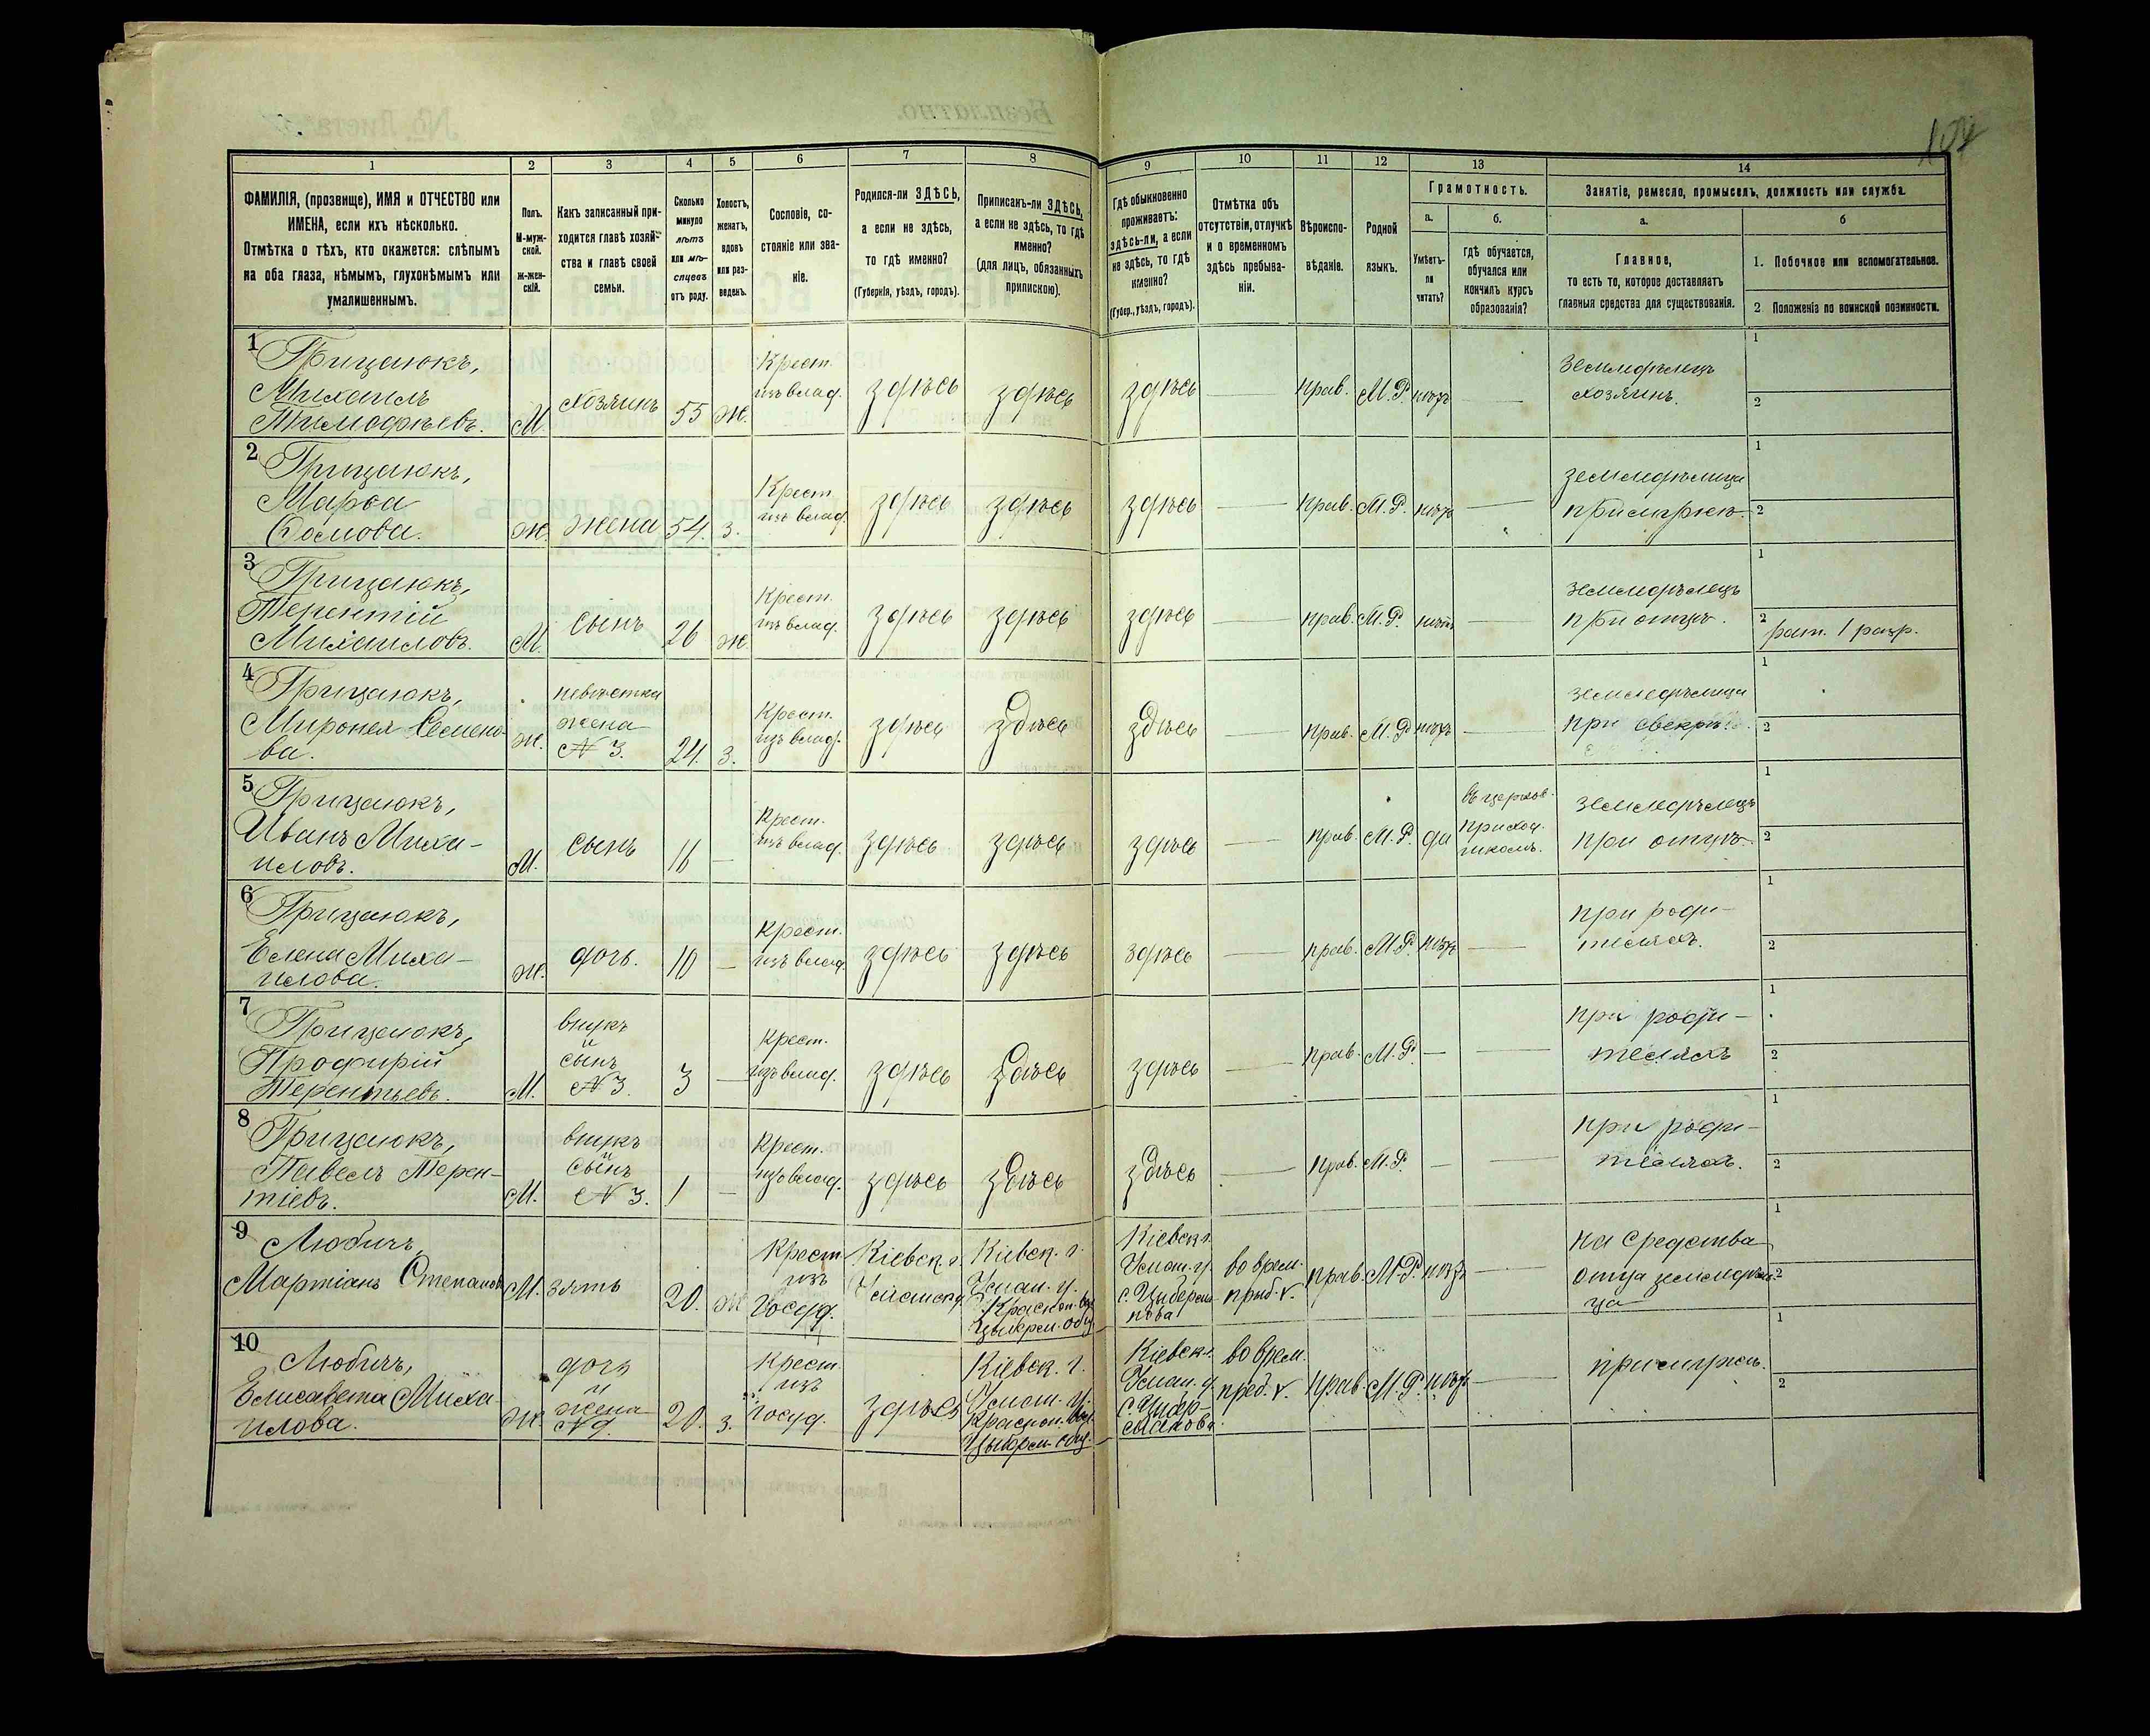 104
1 2 3 4 5 6 7 8 9 10 11 12 13 14
ФАМИЛІЯ, (прозвище), ИМЯ и ОТЧЕСТВО или
ИМЕНА, если ихъ нѣсколько.
Отмѣтка о тѣхъ, кто окажется: слѣпымъ
на оба глаза, нѣмымъ, глухонѣмымъ или
умалишеннымъ.
Полъ.
М-муж-
ской.
Ж-жен-
скій.
Какъ записанный при-
ходится главѣ хозяй-
ства и главѣ своей
семьи.
Сколько
минуло
лѣтъ
или мѣ-
сяцевъ
отъ роду.
Холостъ,
женатъ,
вдовъ
или раз-
веденъ.
Сословіе, со-
стояніе или зва-
ніе.
Родился-ли ЗДѢСЬ,
а если не здѣсь,
то гдѣ именно?
(Губернія, уѣздъ, городъ).
Приписанъ-ли ЗДѢСЬ,
а если не здѣсь, то гдѣ
именно?
(для лицъ, обязанныхъ
припискою).
Гдѣ обыкновенно
проживаетъ:
здѣсь-ли, а если
не здѣсь, то гдѣ
именно?
(Губер., уѣздъ, городъ).
Отмѣтка объ
отсутствіи, отлучкѣ
и о временномъ
здѣсь пребыва-
ніи.
Вѣроиспо-
вѣданіе.
Родной
языкъ.
Грамотность.
а.
Умѣетъ-
ли
читать?
б.
гдѣ обучается,
обучался или
кончилъ курсъ
образованія?
Занятіе, ремесло, промыселъ, должность или служба.
а.
Главное,
то есть то, которое доставляетъ
главныя средства для существованія.
б
1. Побочное или вспомогательное.
2. Положеніе по воинской повинности.
1
Грицаюкъ,
Михаилъ
Тимофѣевъ.
М.
хозяинъ
55
ж.
Крест.
изъ влад.
здѣсь
здѣсь
здѣсь
—
прав.
М.Р.
нѣтъ
—
земледѣлецъ
хозяинъ.
1
2
2
Грицаюкъ,
Марѳа
ж.
жена
54.
з.
Крест.
изъ влад.
здѣсь
здѣсь
здѣсь
—
прав.
М.Р.
нѣтъ
—
земледѣлица
при мужѣ.
1
2
3
Грицаюкъ,
Терентій
Михаиловъ.
М.
сынъ
26
ж.
Крест.
изъ влад.
здѣсь
здѣсь
здѣсь
—
прав.
М.Р.
нѣтъ
—
земледѣлецъ
при отцѣ.
1
2
рат. 1 разр.
4
Грицаюкъ,
Миронея Семено-
ва.
ж.
невѣстка
жена
№ 3.
24.
з.
Крест.
изъ влад.
здѣсь
здѣсь
здѣсь
—
прав.
М.Р.
нѣтъ
—
земледѣлица
при свекрѣ.
1
2
5
Грицаюкъ,
Иванъ Миха-
иловъ.
М.
сынъ
16
—
Крест.
изъ влад.
здѣсь
здѣсь
здѣсь
—
прав.
М.Р.
да
въ церков.
приход.
школѣ.
земледѣлецъ
при отцѣ
1
2
6
Грицаюкъ,
Елена Миха-
илова.
ж.
дочь.
10
—
Крест.
изъ влад.
здѣсь
здѣсь
здѣсь
—
прав.
М.Р.
нѣтъ
—
при роди-
теляхъ.
1
2
7
Грицаюкъ,
Профирій
Терентьевъ.
М.
внукъ
и
сынъ
№ 3.
3
—
Крест.
изъ влад.
здѣсь
здѣсь
здѣсь
—
прав.
М.Р.
—
—
при роди-
теляхъ
1
2
8
Грицаюкъ,
Павелъ Терен-
тіевъ.
М.
внукъ
и
сынъ
№ 3.
1
—
Крест.
изъ влад.
здѣсь
здѣсь
здѣсь
—
прав.
М.Р.
—
—
при роди-
теляхъ.
1
2
9
Любичъ,
Мартіанъ Степановъ
М.
зять
20.
ж
Крест.
изъ
Госуд.
Кіевск. г.
Кіевск. г.
Уман. у.
Кіевск. г.
Уман. у.
во врем.
приб.
прав.
М.Р.
нѣтъ
—
на средства
отца земледѣль-
ца
1
2
10
Любичъ,
Елисавета Миха-
илова.
ж.
дочь
и
жена
№ 9.
20.
з.
Крест.
изъ
Госуд.
здѣсь
Кіевск. г.
Уман. у.
Кіевск. г.
Уман. у.
во врем.
преб.
прав.
М.Р.
нѣтъ
—
при мужѣ.
1
2